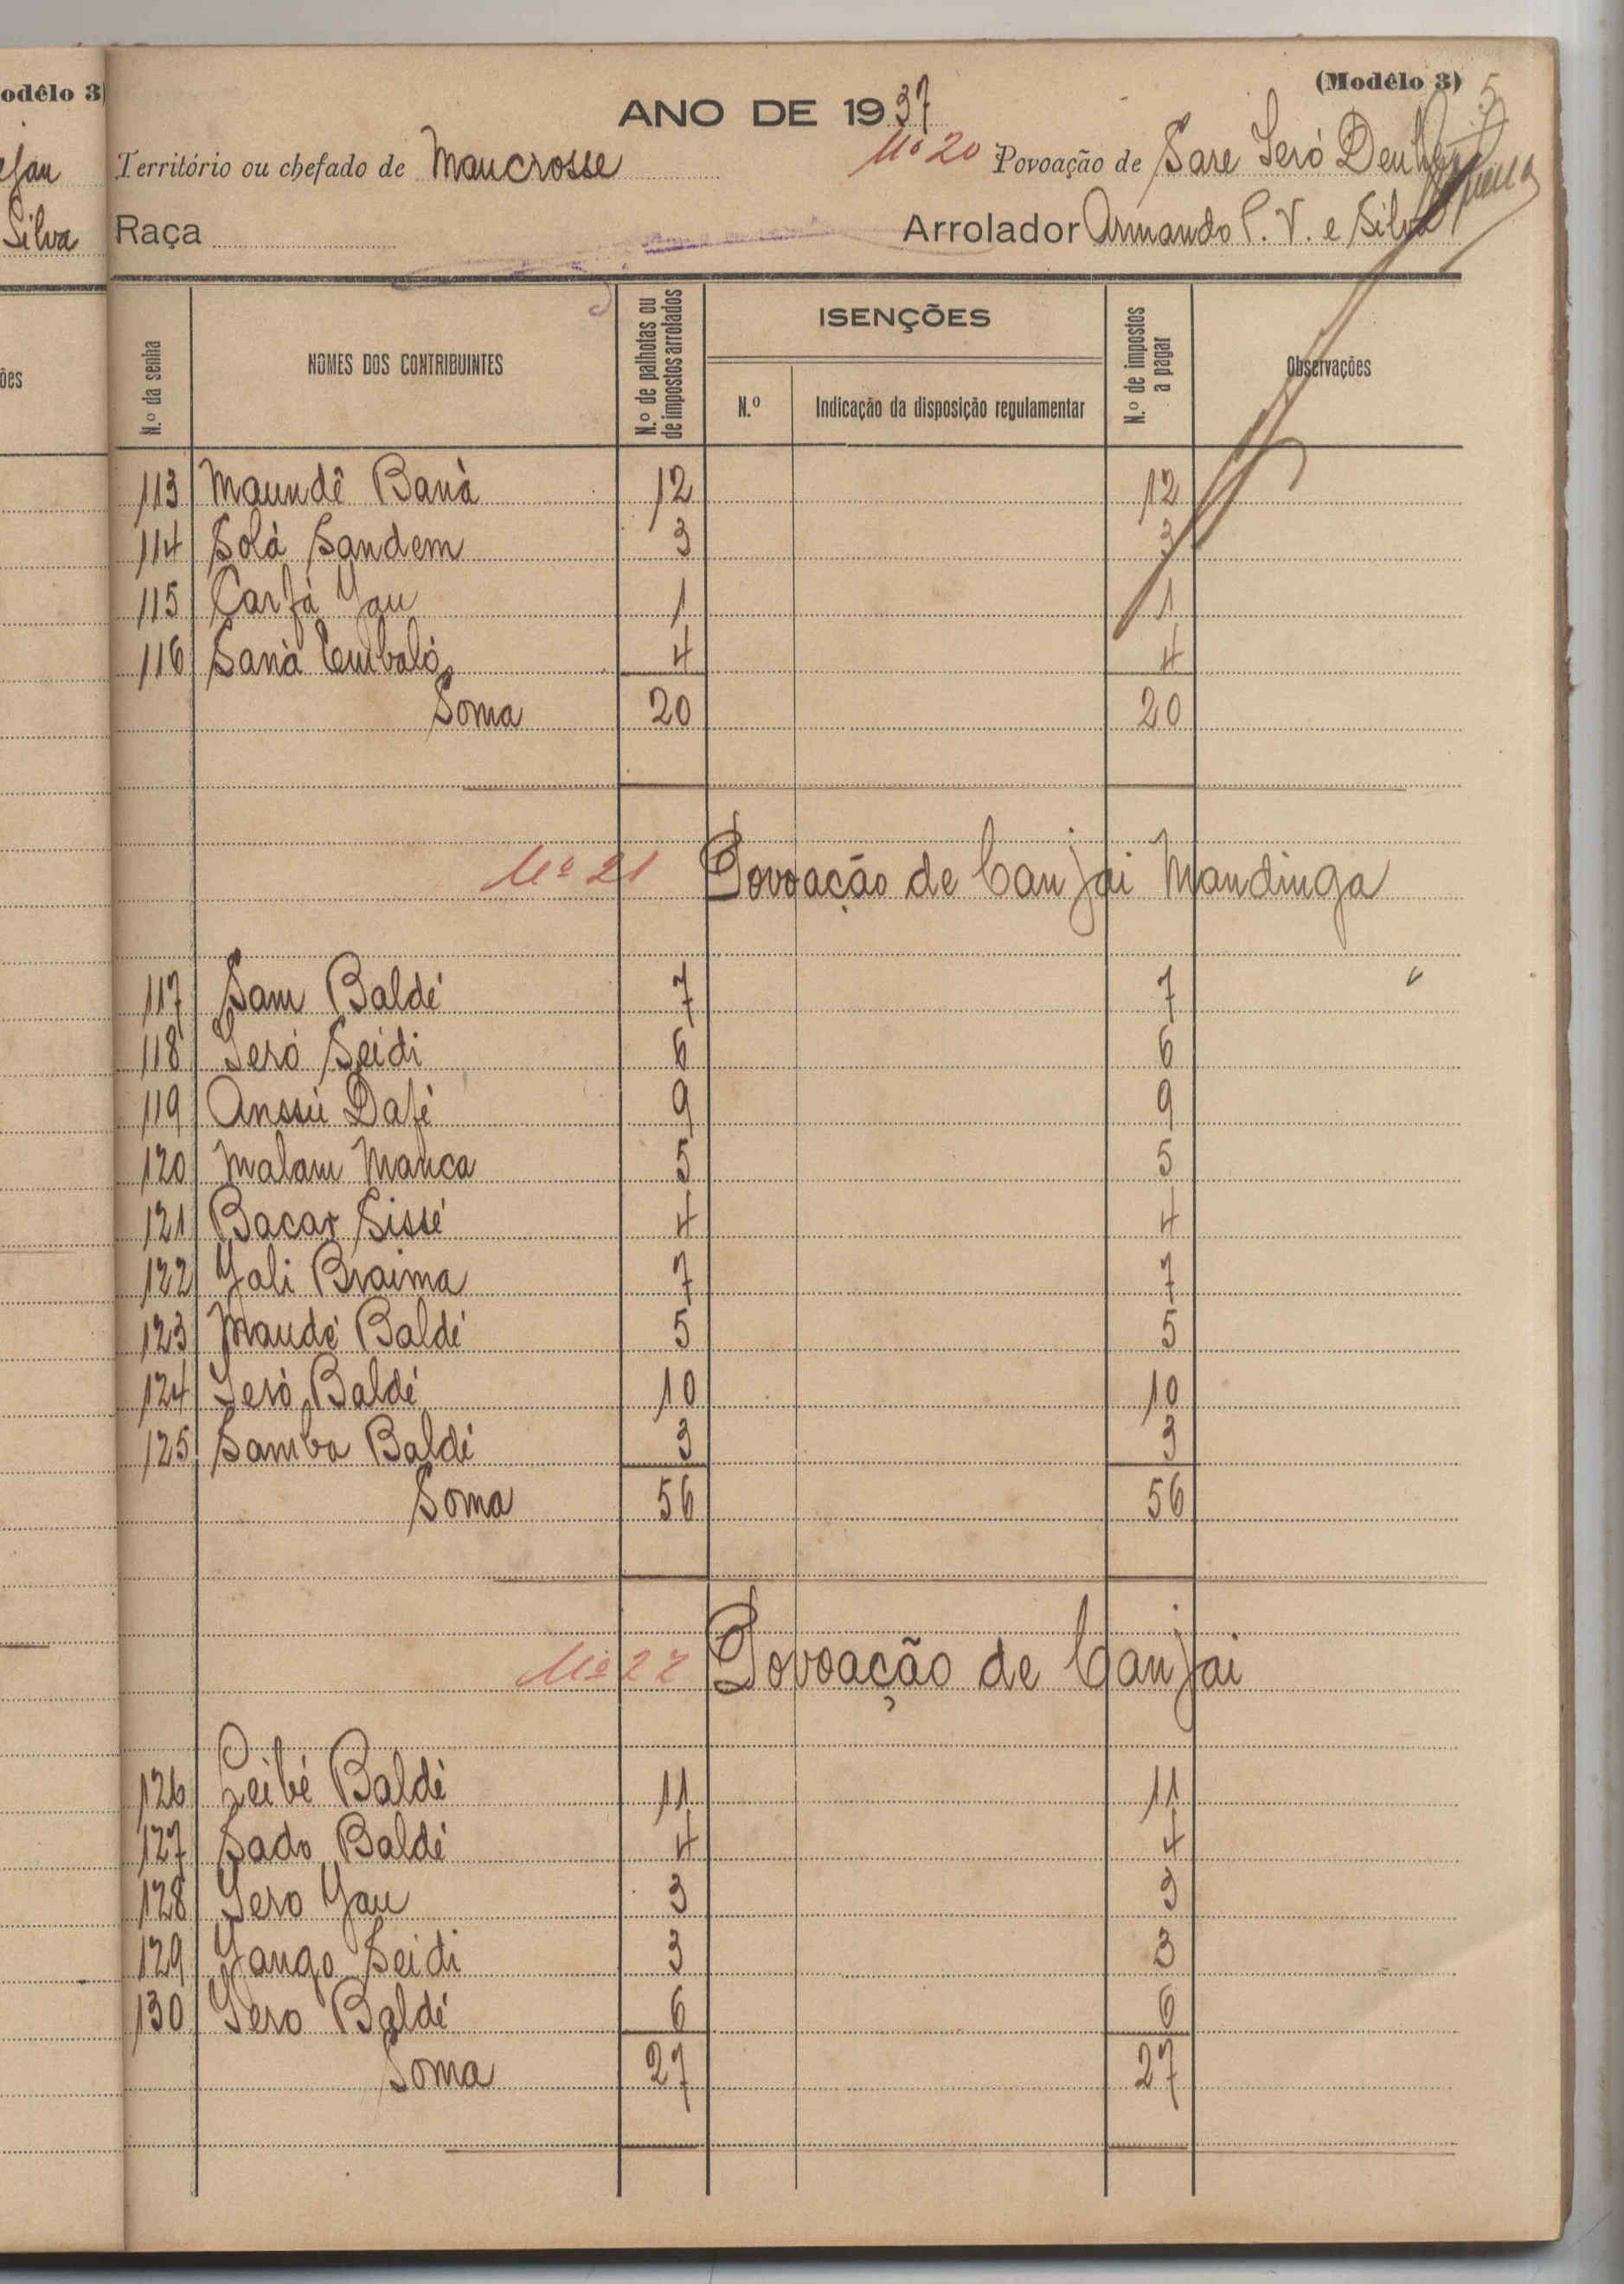 odêlo 3)
Silva
ões
(Modêlo 3) 5
ANO DE 1937
Território ou chefado de Mancrosse Nº 20 Povoação de Sare Seró
Raça Arrolador Armando P. V. e Silva
N.º da senha
NOMES DOS CONTRIBUINTES
N.º de palhotas ou de impostos arrolados
ISENÇÕES
N.º
Indicação da disposição regulamentar
N.º de impostos a pagar
Observações
113 Maundê Baná 12 12
114 Solá Sandem 3 3
115 Carfá Jau 1 1
116 Saná Embaló 4 4
Soma 20 20
Nº 21 Povoação de Canjai Mandinga
117 Sam Baldé 7 7
118 Seró Seidi 6 6
119 Anssú Dafé 9 9
120 Malam Manca 5 5
121 Bacar Sissé 4 4
122 Jali Braima 7 7
123 Maudé Baldé 5 5
124 Seró Baldé 10 10
125 Samba Baldé 3 3
Soma 56 56
Nº 22 Povoação de Canjai
126 Leibé Baldé 11 11
127 Sado Baldé 4 4
128 Sero Jau 3 3
129 Jango Seidi 3 3
130 Sero Baldé 6 6
Soma 27 27